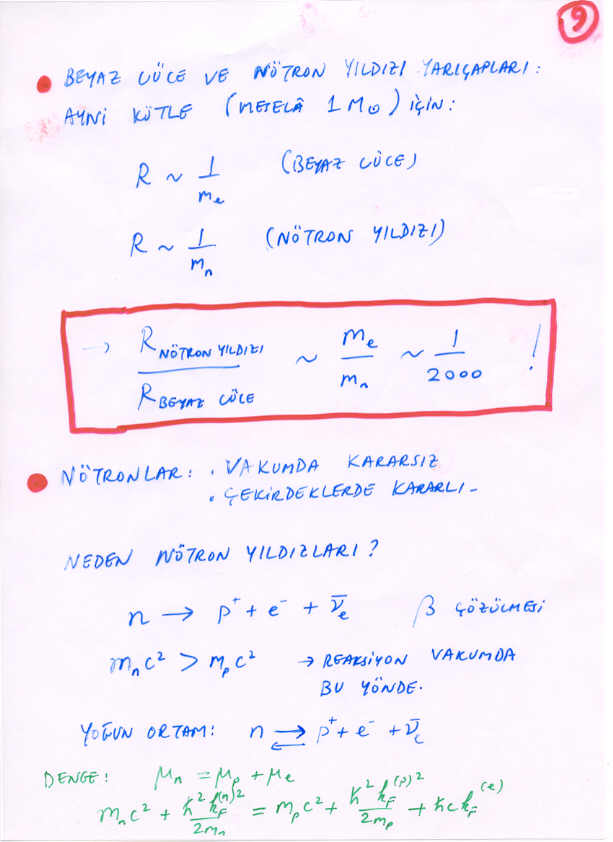 9
BEYAZ CÜCE VE NÖTRON YILDIZI YARIÇAPLARI :
AYNI KÜTLE (MESELÂ 1 M⊙) İÇİN :
R ~ 1/m_e (BEYAZ CÜCE)
R ~ 1/m_n (NÖTRON YILDIZI)
→ R_NÖTRON YILDIZI / R_BEYAZ CÜCE ~ m_e/m_n ~ 1/2000 !
NÖTRONLAR : . VAKUMDA KARARSIZ
. ÇEKİRDEKLERDE KARARLI -
NEDEN NÖTRON YILDIZLARI ?
n → p⁺ + e⁻ + ν̄_e β ÇÖZÜLMESİ
m_n c² > m_p c² → REAKSİYON VAKUMDA
BU YÖNDE.
YOĞUN ORTAM : n ⇄ p⁺ + e⁻ + ν̄_e
DENGE : μ_n = μ_p + μ_e
m_n c² + ħ² k_F^(n)2 / 2m_n = m_p c² + ħ² k_F^(p)2 / 2m_p + ħc k_F^(e)